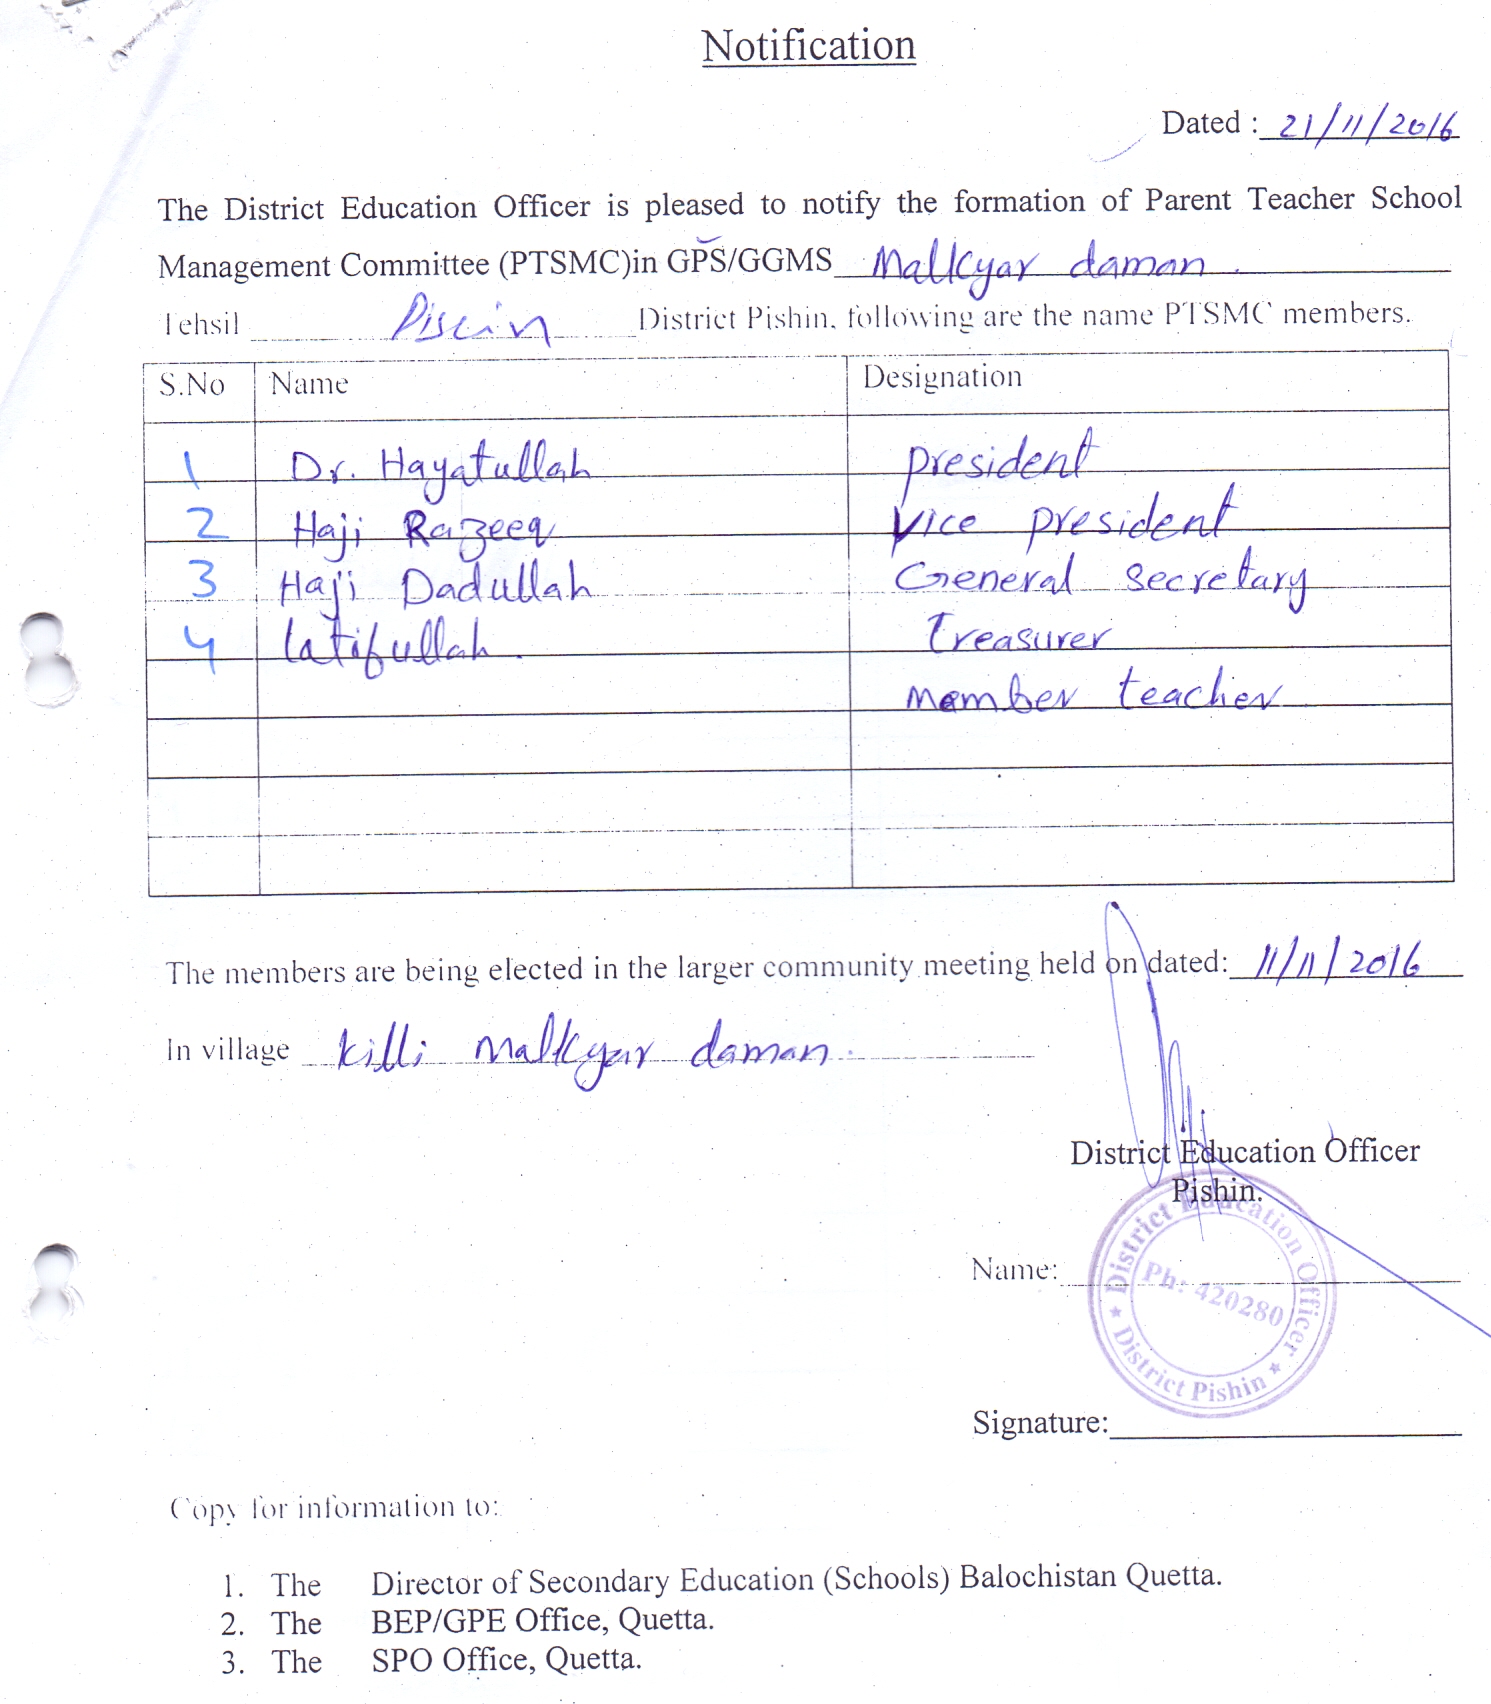 Notification
Dated : 21/11/2016
The District Education Officer is pleased to notify the formation of Parent Teacher School
Management Committee (PTSMC)in GPS/GGMS Malkyar daman.
Tehsil Piscin District Pishin, following are the name PTSMC members.
S.No Name Designation
1 Dr. Hayatullah president
2 Haji Razeeq Vice president
3 Haji Dadullah General secretary
4 latifullah. Treasurer
member teacher
The members are being elected in the larger community meeting held on dated: 11/11/2016
In village killi malkyar daman.
District Education Officer
Pishin.
District Education Officer
Ph: 420280
* District Pishin *
Name:
Signature:
Copy for information to:
1. The Director of Secondary Education (Schools) Balochistan Quetta.
2. The BEP/GPE Office, Quetta.
3. The SPO Office, Quetta.